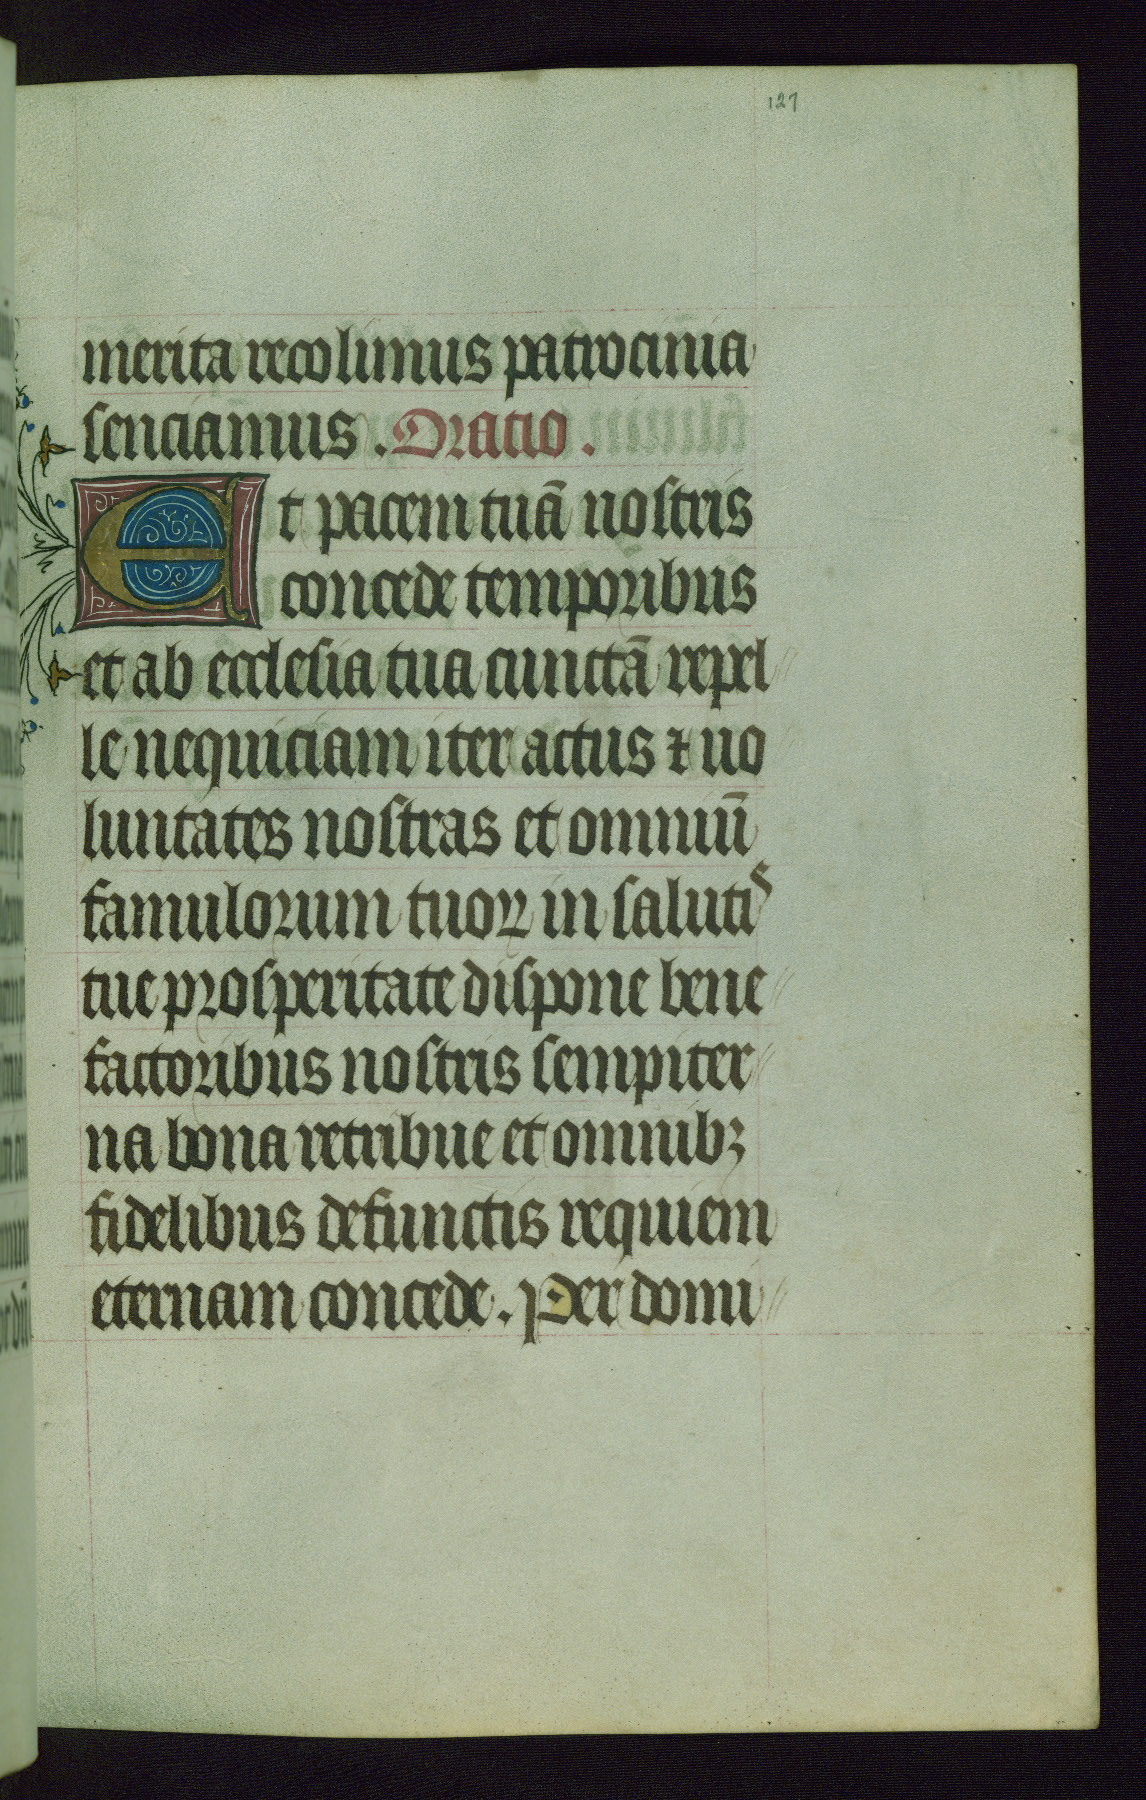 127
merita recolimus patrocinia
senciamus. Oratio.
Et pacem tuā nostris
concede temporibus
et ab ecclesia tua cunctā repel
le nequiciam iter actus ⁊ uo
luntates nostras et omniū
famulorum tuoꝝ in salutis
tue prosperitate dispone bene
factoribus nostris sempiter
na bona retribue et omnibꝫ
fidelibus defunctis requiem
eternam concede. Per domi